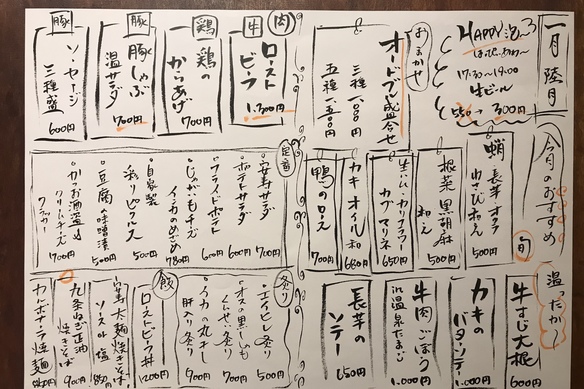 一月 睦月
HAPPY 泡〜
17:30〜19:00
生ビール
550→300円
おまかせ
オードブル盛合せ
三種 一八〇〇円
五種 一五〇〇円
肉
牛
ローストビーフ
1,300円
鶏
鶏のからあげ
700円
豚
豚しゃぶ温サラダ
700円
豚
ソーセージ三種盛
600円
今月のおすすめ
旬
蛸 長芋 オクラ
わさび和え
500円
根菜 黒胡麻和え
500円
生ハム・カリフラワー・カブ マリネ
650円
カキ オイル和
680円
鴨のロース
700円
定番
安寿サラダ
700円
ポテトサラダ
600円
フライドポト
600円
じゃがいもチーズ
インカのめざめ
780円
自家製
彩りピクルス
500円
豆腐の味噌漬
500円
かつお酒盗
クリームチーズ
クラッカー
700円
温ったか〜
牛すじ大根
600円
カキのバタソテー
1,000円
牛肉ごぼう
in 温泉たまご
1,000円
長芋のソテー
650円
炙り
エイヒレ炙り
500円
イカの丸干し
肝入り 炙り
900円
飯
ローストビーフ丼
1200円
太麺焼きそば
ソース or 塩
850円
九条ねぎ醤油
焼きそば
900円
カルボナーラ焼麺